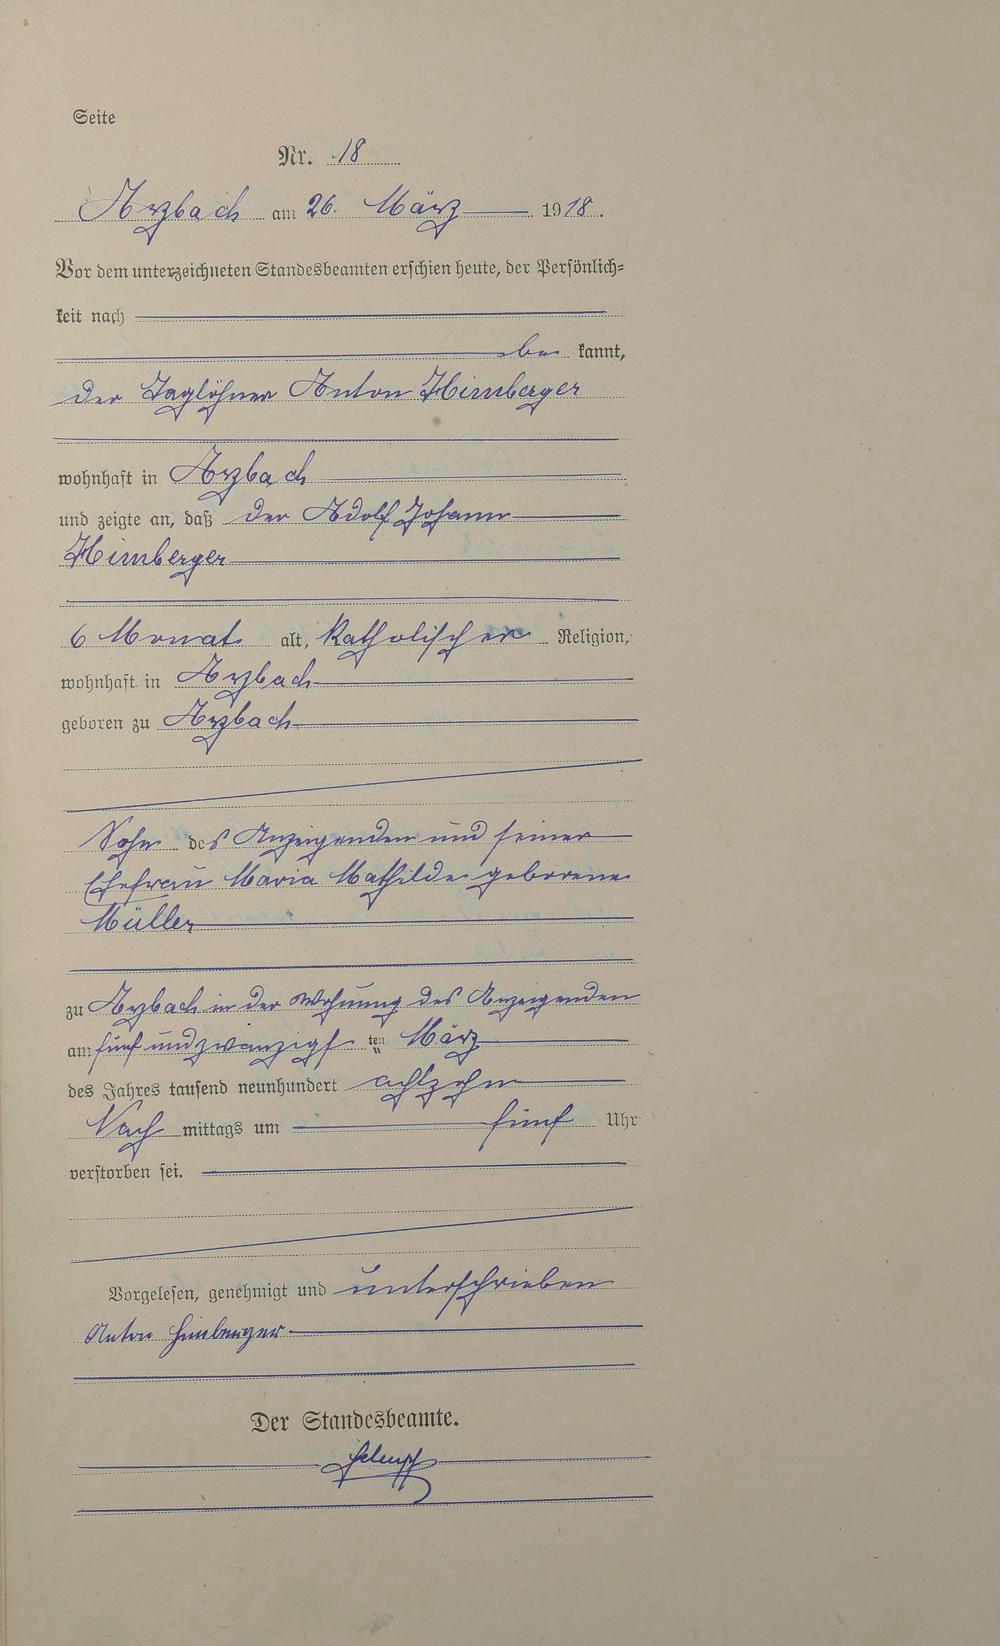 Seite
Nr. 18
Arzbach am 26. März 1918.
Vor dem unterzeichneten Standesbeamten erschien heute, der Persönlich=
keit nach
be kannt,
der Taglöhner Anton Himberger
wohnhaft in Arzbach
und zeigte an, daß der Adolf Johann
Himberger
6 Monat alt, katholischer Religion,
wohnhaft in Arzbach
geboren zu Arzbach
Sohn des Anzeigenden und seiner
Ehefrau Maria Mathilde geborene
Müller
zu Arzbach in der Wohnung des Anzeigenden
am fünf und zwanzigs ten März
des Jahres tausend neunhundert achtzehn
Nach mittags um fünf Uhr
verstorben sei.
Vorgelesen, genehmigt und unterschrieben
Anton Himberger
Der Standesbeamte.